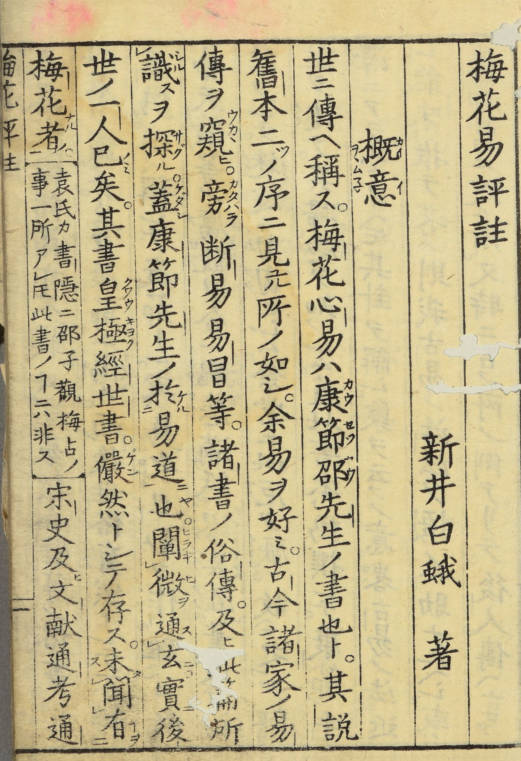 梅花易評註
新井白蛾 著
概意
世ニ傳ヘ稱ス。梅花心易ハ康節邵先生ノ書也ト。其説
舊本二ツノ序ニ見元所ノ如シ。余易ヲ好ミ。古今諸家ノ易
傳ヲ窺ヒ。旁断易易冒等。諸書ノ俗傳。及ヒ此
識スヲ探ル。蓋康節先生ノ於易道也。闡微通玄實後
世ノ一人已矣。其書皇極經世書。儼然トシテ存ス。未聞有
梅花者。袁氏カ書隱ニ邵子觀梅占ノ
事一所アレ𪜈此書ノヿニハ非ス
宋史及文献通考通
梅花評註